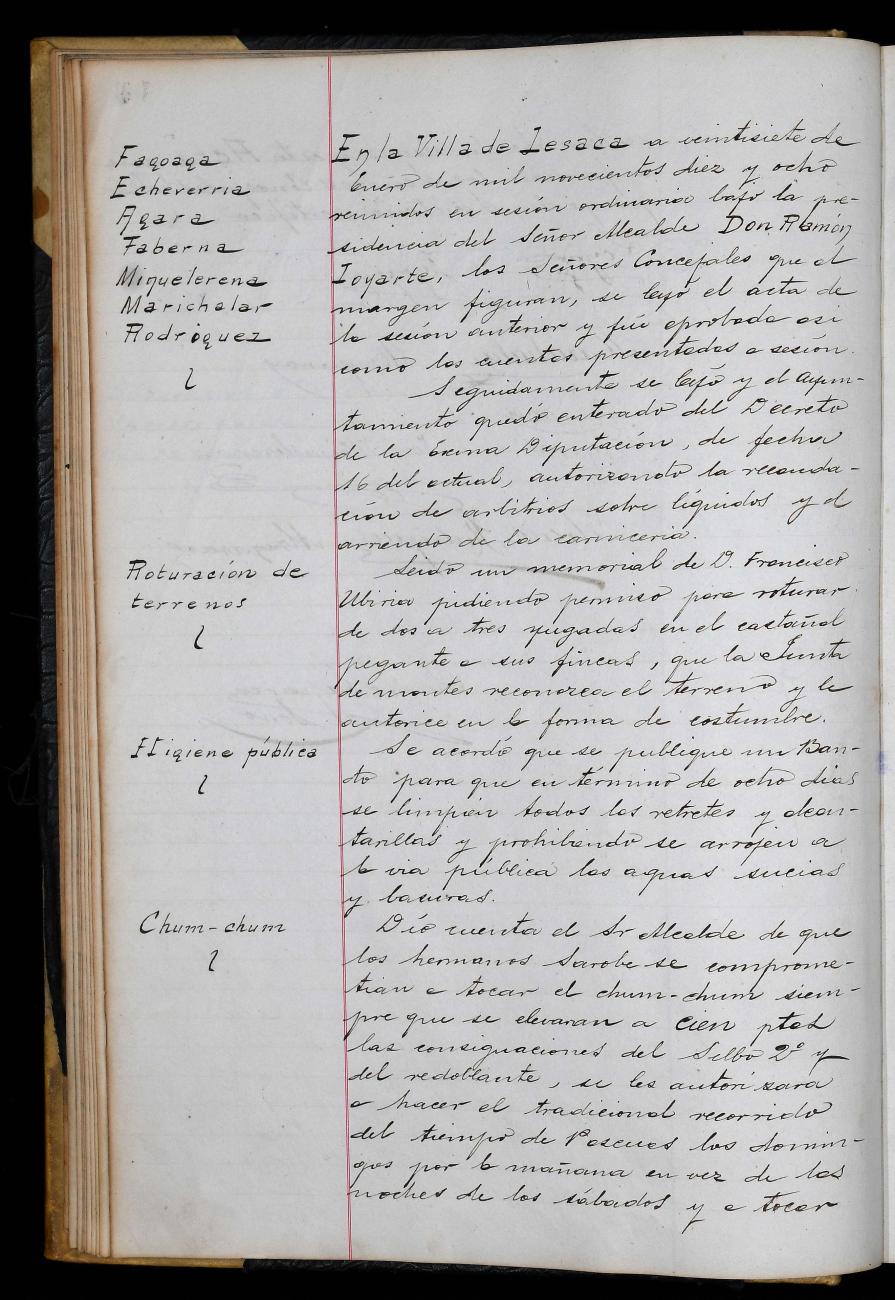 Fagoaga
Echeverria
Agara
Taberna
Miguelerena
Marichalar
Rodriguez
En la Villa de Lesaca a veintisiete de
Enero de mil novecientos diez y ocho
reunidos en sesión ordinaria bajo la pre-
sidencia del Señor Alcalde Don Ramón
Ioyarte, los Señores Concejales que al
margen figuran, se leyó el acta de
la sesión anterior y fué aprobada asi
como las cuentas presentadas a sesión.
Seguidamente se leyó y el Ayun-
tamiento quedó enterado del Decreto
de la Exma Diputación, de fecha
16 del actual, autorizando la recauda-
ción de arbitrios sobre líquidos y el
arriendo de la carniceria.
Roturación de
terrenos
Leido un memorial de D. Francisco
Ubiria pidiendo permiso para roturar
de dos a tres yugadas en el castañal
pegante a sus fincas, que la Junta
de montes reconozca el terreno y le
autorice en la forma de costumbre.
Higiene pública
Se acordó que se publique un Ban-
do para que en término de ocho dias
se limpien todos los retretes y alcan-
tarillas y prohibiendo se arrojen a
la via pública las aguas sucias
y basuras.
Chum-chum
Dió cuenta el Sr Alcalde de que
los hermanos Sarobe se comprome-
tian a tocar el chum-chum siem-
pre que se elevaran a cien ptas
las consignaciones del Silbo 2º y
del redoblante, se les autorizara
a hacer el tradicional recorrido
del tiempo de Pascuas los domin-
gos por la mañana en vez de las
noches de los sábados y a tocar